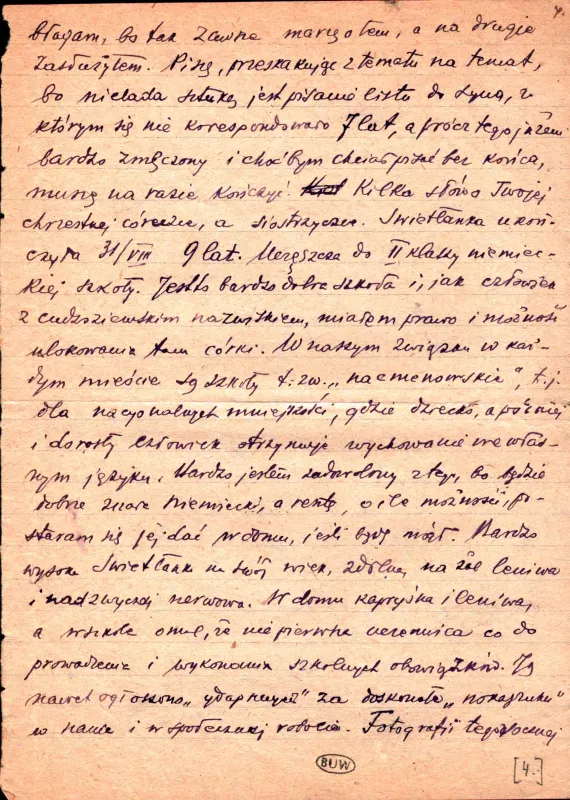 4.
błagam, bo tak zawsze marzę o tem, a na drugie
zasłużyłem. Piszę, przeskakując z tematu na temat,
bo nielada sztuką jest pisanie listu do syna, z
którym się nie korespondowało 7 lat, a prócz tego jestem
bardzo zmęczony i choćbym chciał pisać bez końca,
muszę na razie kończyć. Kilka słów o Twojej
chrzestnej córeczce, a siostrzyczce. Swietłanka ukoń-
czyła 31/VIII 9 lat. Uczęszcza do II klasy niemiec-
kiej szkoły. Jest to bardzo dobra szkoła i, jak człowiek
z cudzoziemskim nazwiskiem, miałem prawo i możność
ulokowania tam córki. W naszym Związku w każ-
dym mieście są szkoły t. zw. „nacmenowskie", t. j.
dla nacyonalnych mniejszości, gdzie dziecko, a później
i dorosły człowiek otrzymuje wychowanie we włas-
nym języku. Bardzo jestem zadowolony z tego, bo będzie
dobrze znała niemiecki, a resztę, o ile możności, po-
staram się jej dać w domu, jeśli będę mógł. Bardzo
wysoka Swietłanka na swój wiek, zdolna, na żal leniwa
i nadzwyczaj nerwowa. W domu kapryśna i leniwa,
a w szkole omal, że nie pierwsza uczennica co do
prowadzenia i wykonania szkolnych obowiązków. Ją
nawet ogłoszono „udarnicą" za doskonałe
w nauce i w społecznej robocie. Fotografji tegorocznej
BUW
[4.]